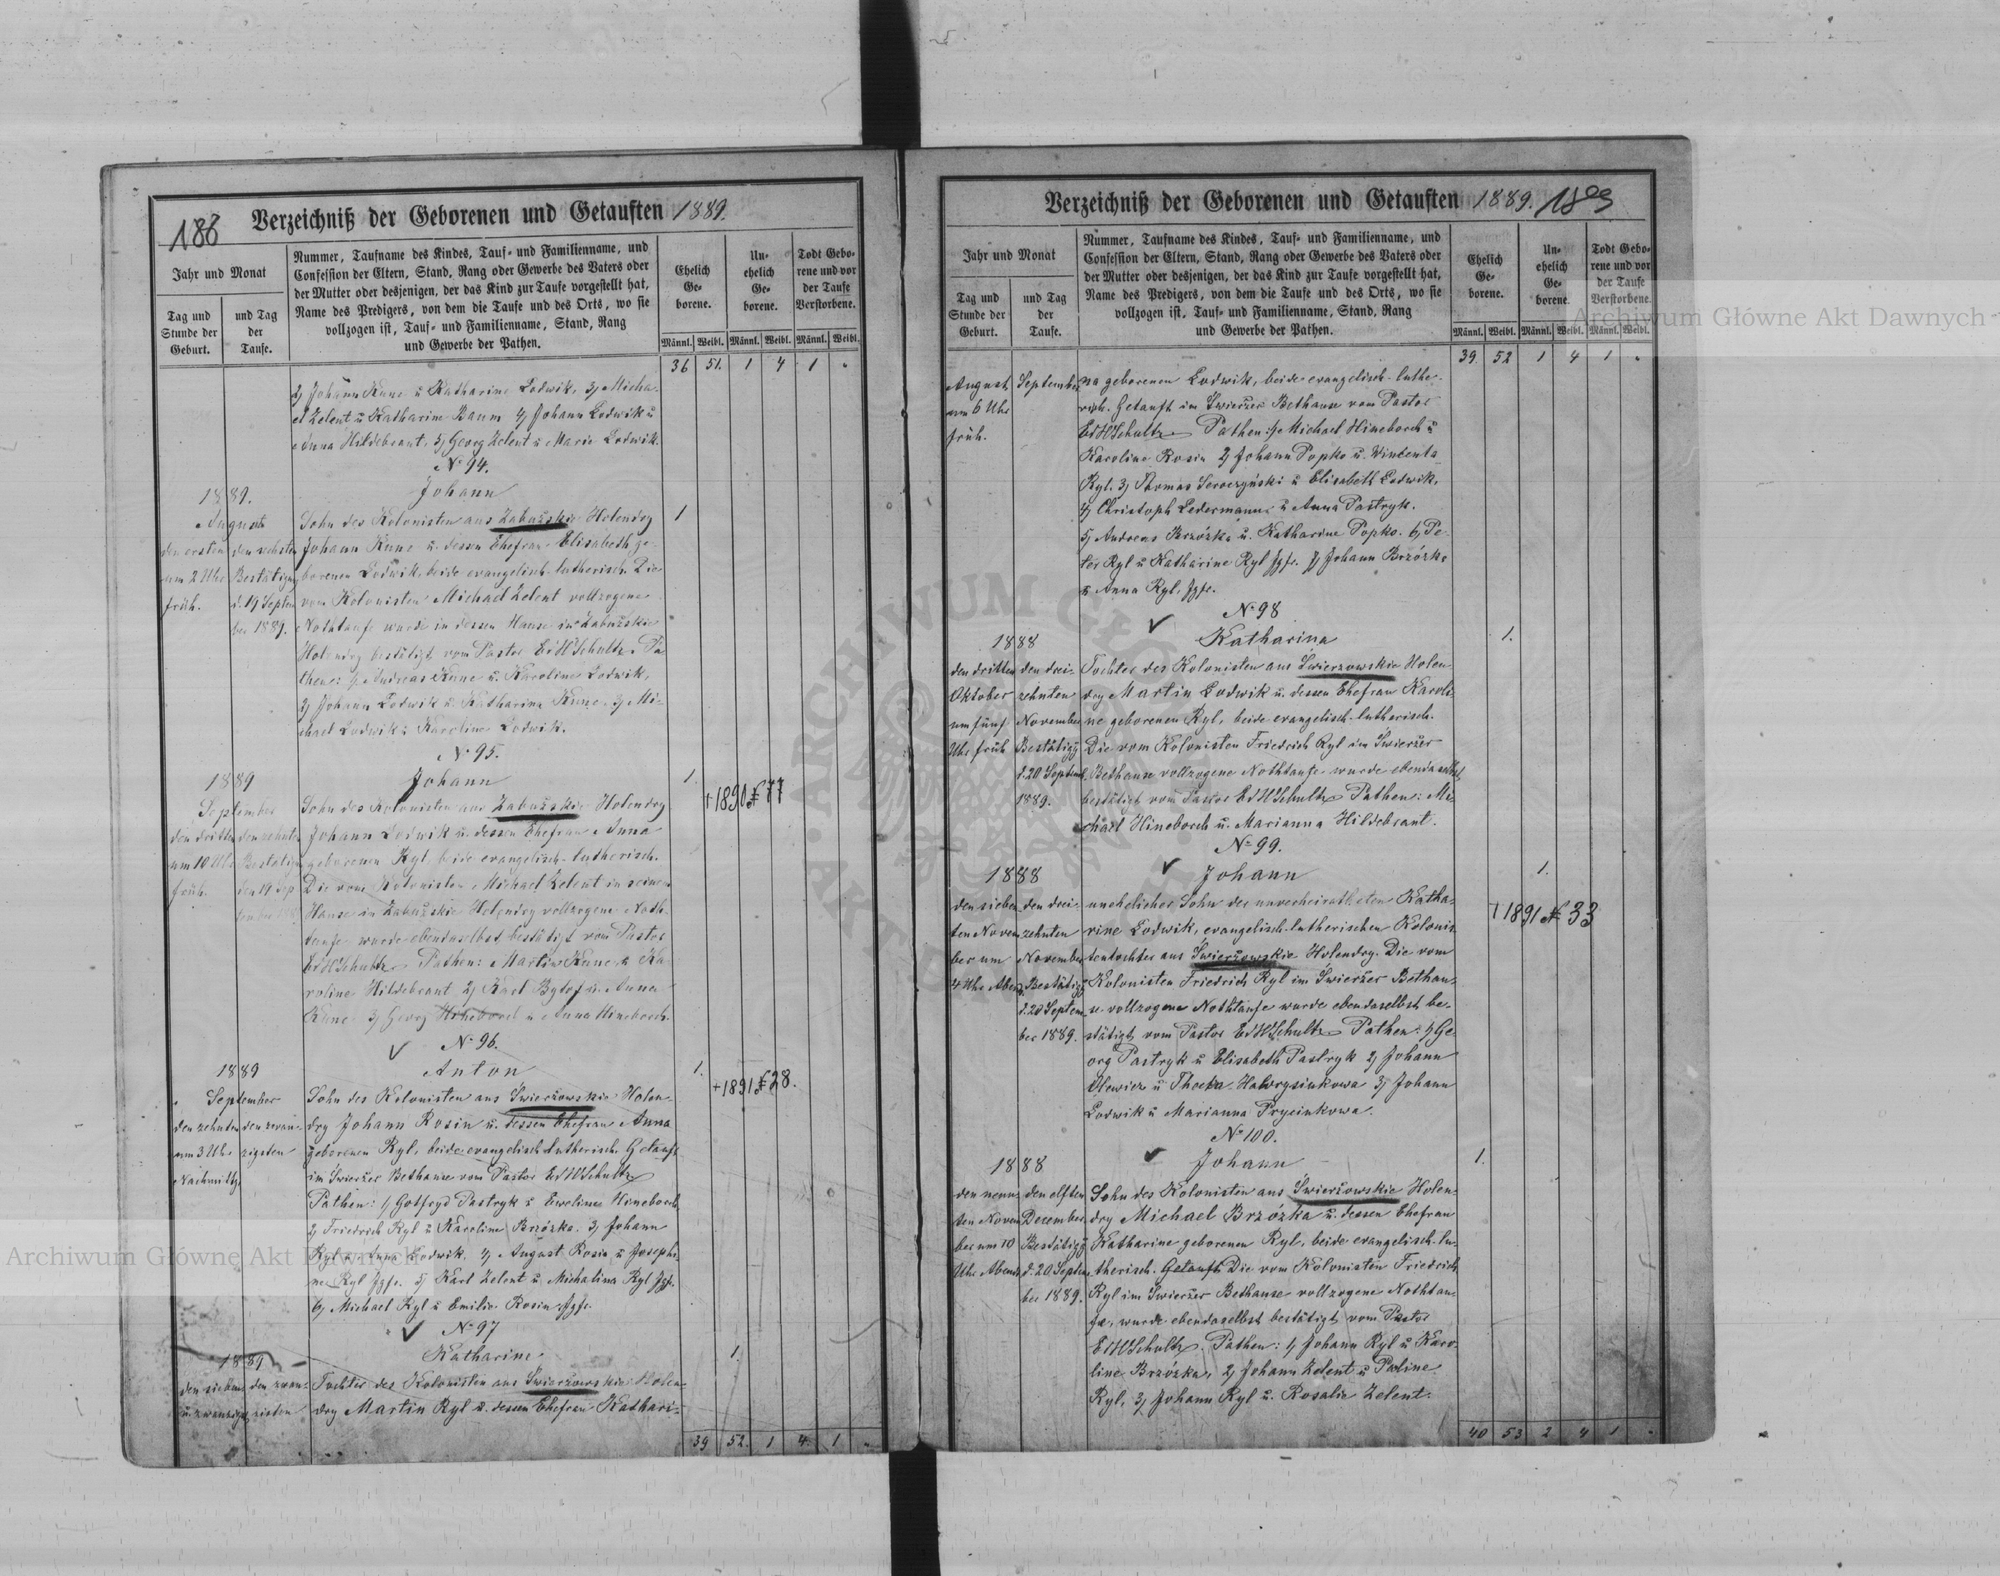 186
Verzeichniß der Geborenen und Getauften 1889.
Jahr und Monat
Tag und Stunde der Geburt.
und Tag der Taufe.
Nummer, Taufname des Kindes, Tauf- und Familienname, und
Confession der Eltern, Stand, Rang oder Gewerbe des Vaters oder
der Mutter oder desjenigen, der das Kind zur Taufe vorgestellt hat,
Name des Predigers, von dem die Taufe und des Orts, wo sie
vollzogen ist, Tauf- und Familienname, Stand, Rang
und Gewerbe der Pathen.
Ehelich Ge- borene.
Un- ehelich Ge- borene.
Todt Gebo- rene und vor der Taufe Verstorbene.
Männl. Weibl. Männl. Weibl. Männl. Weibl.
36 51. 1 4 1 .
2, Johann Kune u Katharine Lodwik, 3, Micha-
el Zelent u Katharine Baum 4, Johann Lodwik u
Anna Hildebrant, 5, Georg Zelent u Marie Lodwik.
No 94.
1889.
Johann
August
den ersten um 2 Uhr früh.
den sechsten Bestätigung d. 19 Septem ber 1889.
Sohn des Kolonisten aus Zabużskie Holendry
1
Johann Kune u. dessen Ehefrau Elisabeth ge-
borenen Lodwik, beide evangelisch-lutherisch. Die
vom Kolonisten Michael Zelent vollzogene
Nothtaufe wurde in dessen Hause in Zabużskie
Holendry bestätigt vom Pastor EdHSchultz. Pa-
then: 1, Andreas Kune u. Karoline Lodwik,
2, Johann Lodwik u. Katharina Kune. 3, Mi-
chael Lodwik u Karoline Lodwik.
No 95.
1889
Johann
1.
† 1890 № 77
September
den dritten um 10 Uhr früh.
den zehnten Bestätigung den 19 Sep
Sohn des Kolonisten aus Zabużskie Holendry
Johann Lodwik u. dessen Ehefrau Anna
geborenen Ryl, beide evangelisch-lutherisch.
Die vom Kolonisten Michael Zelent in seinem
Hause in Zabużskie Holendry vollzogene Noth-
taufe wurde ebendaselbst bestätigt vom Pastor
EdHSchultz. Pathen: Martin Kune u Ka-
roline Hildebrant 2, Karl Bytof u. Anna
Kune 3, Georg Hineborch u Anna Hineborch.
No 96.
1889
Anton
1.
† 1891 № 28.
September
den zehnten um 3 Uhr Nachmittg
den zwan- zigsten
Sohn des Kolonisten aus Świerżowskie Holen-
dry Johann Rosin u. dessen Ehefrau Anna
geborenen Ryl, beide evangelisch-lutherisch. Getauft
im Świerżer Bethause vom Pastor EdHSchultz
Pathen: 1, Gotfryd Pastryk u Ewelina Hineborch
2, Friedrich Ryl u Karoline Brzózka. 3, Johann
Ryl u Anna Lodwik. 4, August Rosin u Josephi-
ne Ryl Jgfr. 5, Karl Zelent u. Michalina Ryl Jgfr.
6, Michael Ryl u Emilie Rosin Jgfr.
No 97
1889
Katharine
1.
den sieben u. zwanzig
den zwan- zigsten
Tochter des Kolonisten aus Świerżowskie Holen-
dry Martin Ryl u. dessen Ehefrau Kathari-
39 52. 1 4. 1 .
Verzeichniß der Geborenen und Getauften 1889.
Jahr und Monat
Tag und Stunde der Geburt.
und Tag der Taufe.
Nummer, Taufname des Kindes, Tauf- und Familienname, und
Confession der Eltern, Stand, Rang oder Gewerbe des Vaters oder
der Mutter oder desjenigen, der das Kind zur Taufe vorgestellt hat,
Name des Predigers, von dem die Taufe und des Orts, wo sie
vollzogen ist, Tauf- und Familienname, Stand, Rang
und Gewerbe der Pathen.
Ehelich Ge- borene.
Un- ehelich Ge- borene.
Todt Gebo- rene und vor der Taufe Verstorbene.
Männl. Weibl. Männl. Weibl. Männl. Weibl.
39. 52 1 4 1 .
August um 6 Uhr früh.
September
na geborenen Lodwik, beide evangelisch-luthe-
risch. Getauft im Świerżer Bethause vom Pastor
EdHSchultz. Pathen: 1, Michael Hineborch u
Karoline Rosin 2, Johann Popko u. Wincenta
Ryl. 3, Thomas Seroczyński u Elisabeth Lodwik,
4, Christoph Ledermann u Anna Pastryk.
5, Andreas Brzózka u. Katharine Popko. 6, Pe-
ter Ryl u Katharine Ryl Jgfr. 7, Johann Brzózka
u Anna Ryl, Jgfr.
No 98
1888
Katharina
1.
den dritten Oktober um fünf Uhr früh
den drei- zehnten November Bestätigg d. 20 Septemb. 1889.
Tochter des Kolonisten aus Świerżowskie Holen-
dry Martin Lodwik u. dessen Ehefrau Karoli-
ne geborenen Ryl, beide evangelisch-lutherisch.
Die vom Kolonisten Friedrich Ryl im Świerżer
Bethause vollzogene Nothtaufe wurde ebendaselbst
bestätigt vom Pastor EdHSchultz Pathen: Mi-
chael Hineborch u. Marianna Hildebrant.
No 99.
1888
Johann
1.
† 1891 № 33
den sieben ten Novem ber um 4 Uhr Abend
den drei- zehnten November Bestätigg d. 20 Septem ber 1889.
unehelicher Sohn der unverheiratheten Katha-
rine Lodwik, evangelisch-lutherischen Kolonis-
tentochter aus Świerżowskie Holendry. Die vom
Kolonisten Friedrich Ryl im Świerżer Bethau-
se vollzogene Nothtaufe wurde ebendaselbst be-
stätigt vom Pastor EdHSchultz Pathen: 1, Ge-
org Pastryk u Elisabeth Pastryk 2, Johann
Olewicz u Thecka 3, Johann
Lodwik u Marianna Prycinkowa.
No 100.
1888
Johann
1.
den neun- ten Novem ber um 10 Uhr Abends
den elften December Bestätigg d. 20 Septem ber 1889.
Sohn des Kolonisten aus Świerżowskie Holen-
dry Michael Brzózka u. dessen Ehefrau
Katharine geborenen Ryl, beide evangelisch-lu-
therisch. Getauft Die vom Kolonisten Friedrich
Ryl im Świerżer Bethause vollzogene Nothtau-
fe, wurde ebendaselbst bestätigt vom Pastor
EdHSchultz. Pathen: 1, Johann Ryl u Karo-
line Brzózka, 2, Johann Zelent u Pauline
Ryl, 3, Johann Ryl u. Rosalie Zelent.
40 53 2 4 1 .
Archiwum Główne Akt Dawnych
Archiwum Główne Akt Dawnych